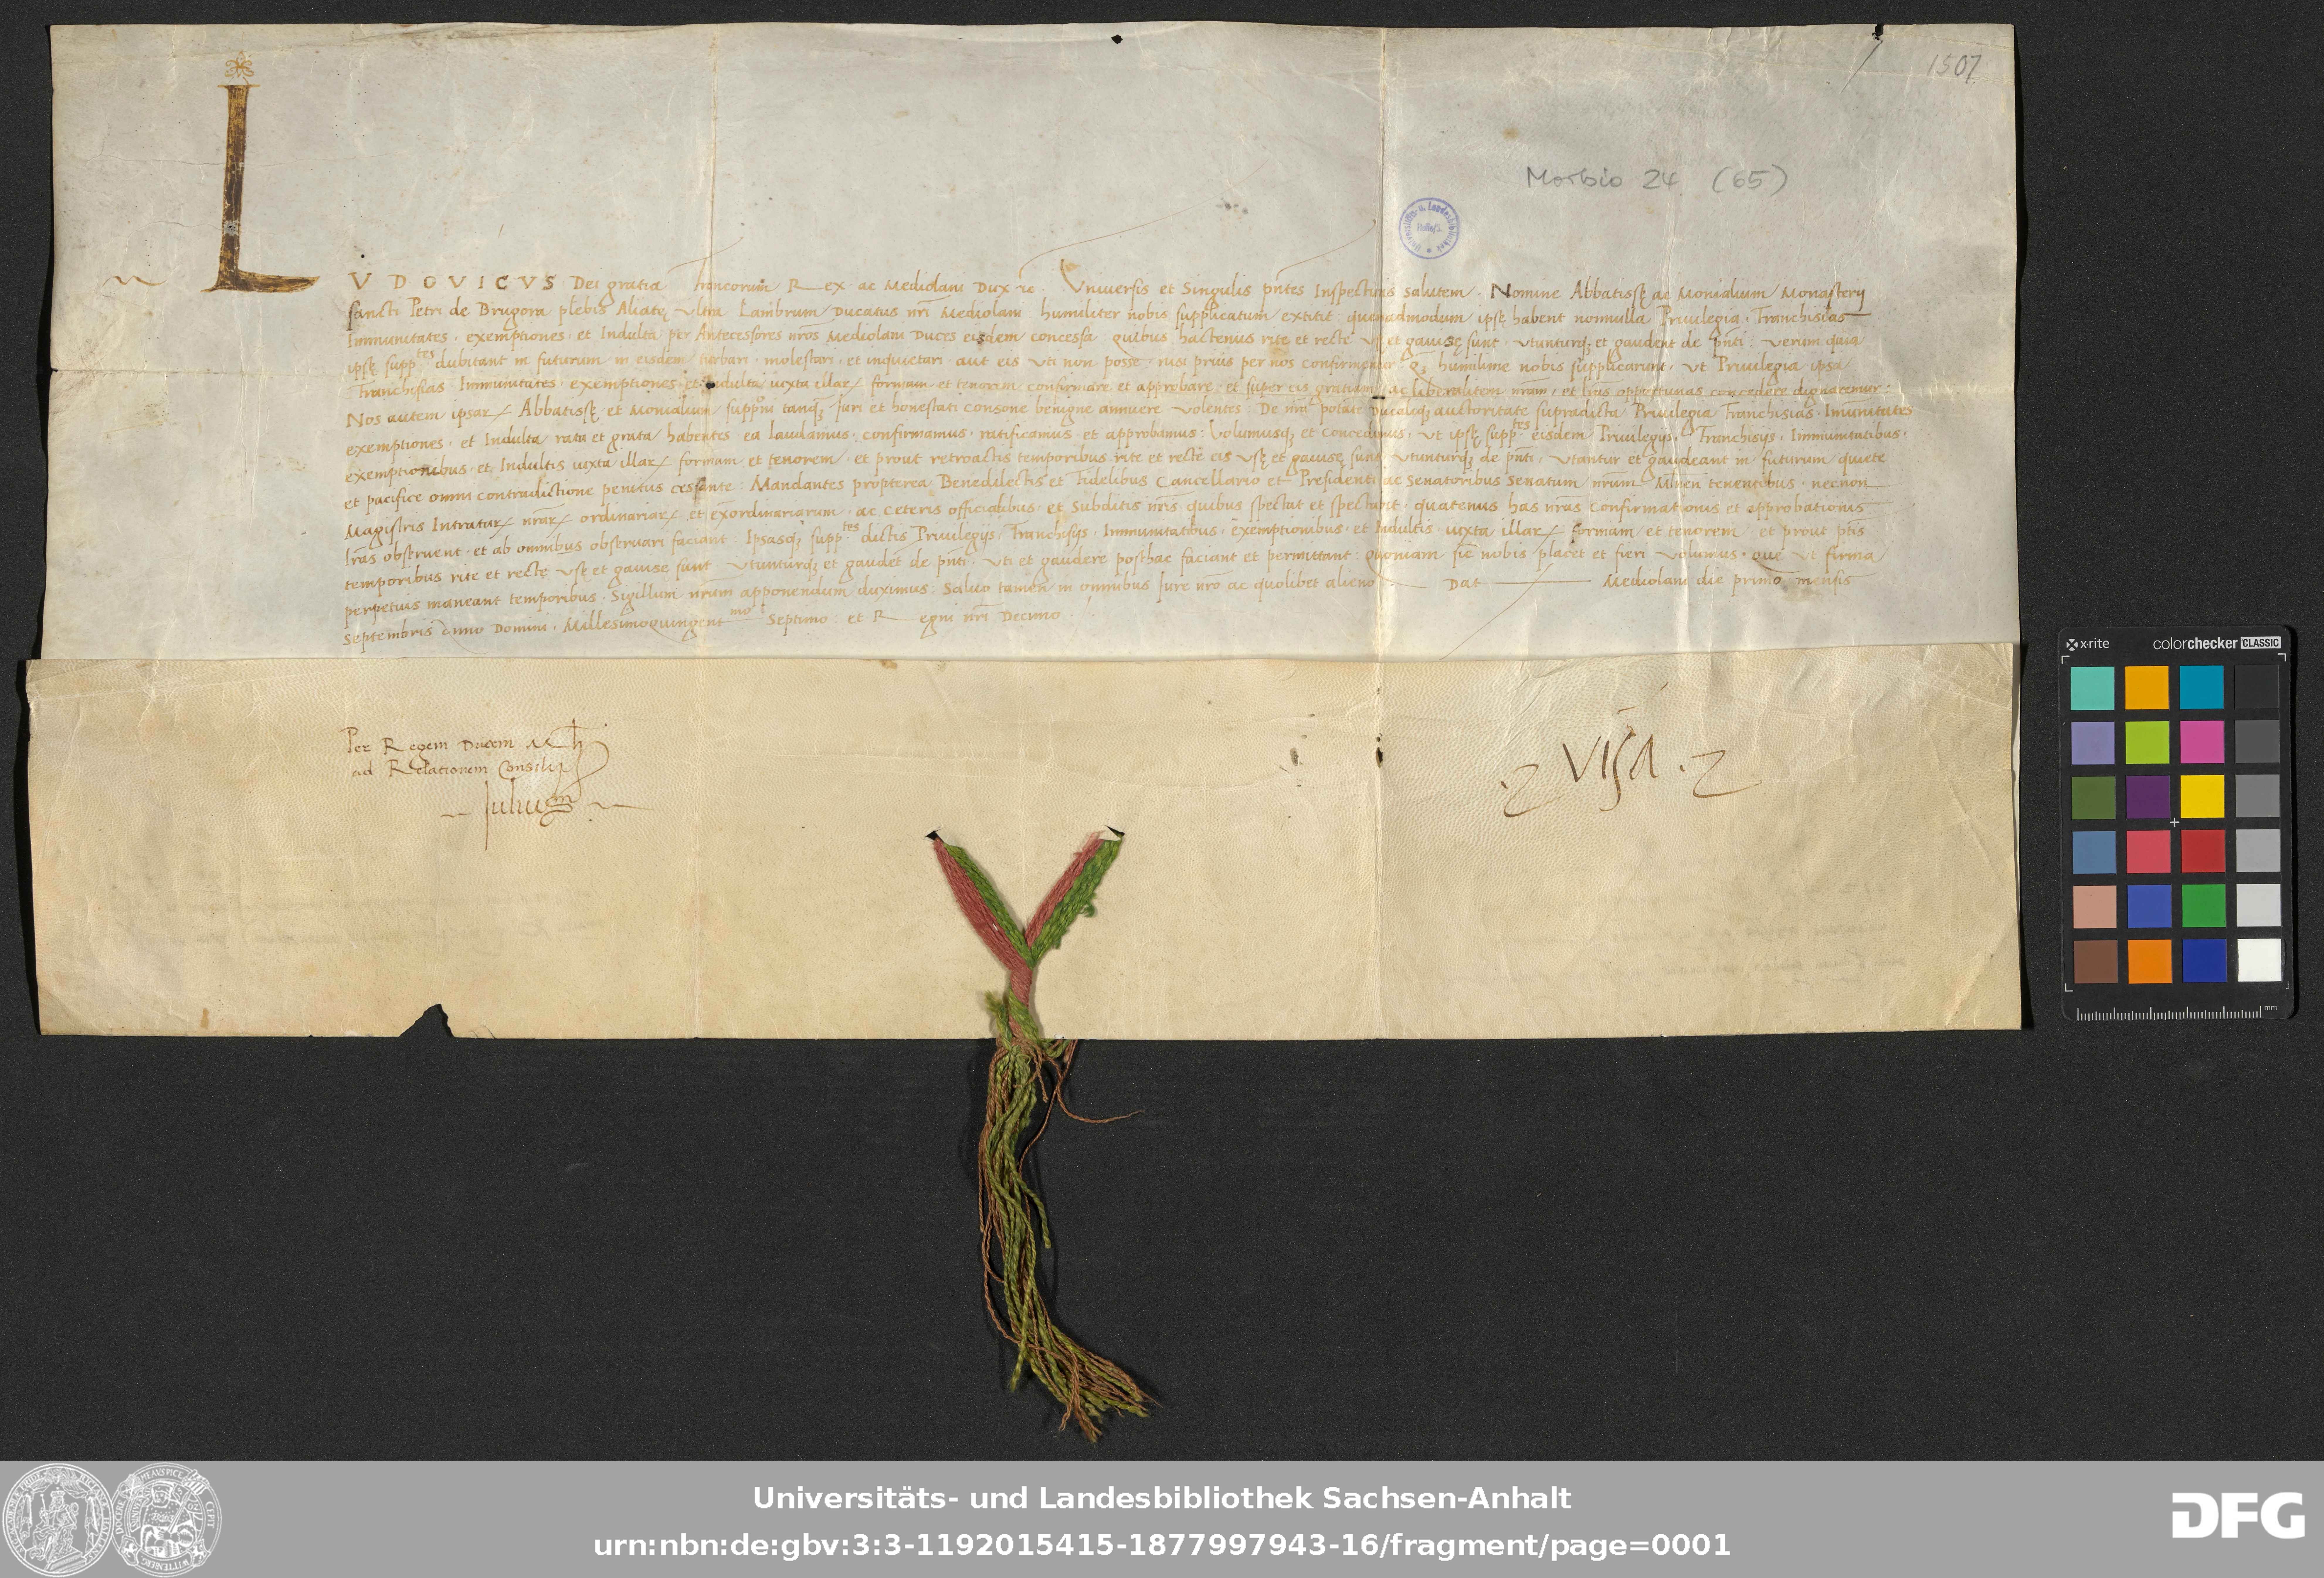 1507
Morbio 24 (65)
LVDOVICVS Dei gratia Francorum Rex ac Mediolani Dux &c. Vniuersis et Singulis pñtes Inspecturis salutem. Nomine Abbatissę ac Monialium Monasterij
sancti Petri de Brugora plebis Aliatę vltra Lambrum Ducatus nrĩ Mediolani humiliter nobis supplicatum extitit: quemadmodum ipsę habent nonnulla Priuilegia. Franchisias
Immunitates. exemptiones. et Indulta per Antecessores nrõs Mediolani Duces eisdem concessa quibus hactenus rite et recte vsę et gauisę sunt. vtunturqȝ et gaudent de pñti: verum quia
ipsę supp.tes dubitant in futurum in eisdem turbari. molestari. et inquietari. aut eis vti non posse. nisi prius per nos confirmentur. humilime nobis supplicarunt. vt Priuilegia ipsa
Franchisias Immunitates. exemptiones. et Indulta iuxta illarꝝ formam et tenorem confirmare et approbare. et super eis gratiam ac liberalitem nrãm. et lrãs opportunas concedere dignaremur:
Nos autem ipsarꝝ Abbatissę et Monialium tanqȝ Juri et honestati consone benigne annuere volentes: De Ducaliqȝ auctoritate supradicta Priuilegia Franchisias. Immunitates
exemptiones. et Indulta rata et grata habentes ea laudamus. confirmamus. ratificamus et approbamus: Volumusqȝ et concedimus. vt ipsę supp.tes eisdem Priuilegijs. Franchisijs. Immunitatibus.
exemptionibus. et Indultis iuxta illarꝝ formam et tenorem. et prout retroactis temporibus rite et recte eis vsę et gauisę sunt. vtunturqȝ de pñti. vtantur et gaudeant in futurum quiete
et pacifice omni contradictione penitus cessante: Mandantes propterea Benedilectis et Fidelibus Cancellario et Presidenti ac Senatoribus Senatum nrũm Mlni tenentibus. necnon
Magistris Intratarꝝ nrãrꝝ ordinariarꝝ et exordinariarum. ac ceteris officialibus et Subditis nrĩs quibus spectat et spectabit. quatenus has nrãs confirmationis et approbationis
lrãs obseruent. et ab omnibus obseruari faciant: Ipsasqȝ supp.tes dictis Priuilegijs. Franchisijs. Immunitatibus. exemptionibus. et Indultis. iuxta illarꝝ formam et tenorem et prout ptis
temporibus rite et rectę vsę et gauisę sunt vtunturqȝ et gaudẽt de pñti. vti et gaudere posthac faciant et permittant: quoniam sic nobis placet et fieri volumus. que vt firma
perpetuis maneant temporibus. Sigillum nrũm apponendum duximus: Saluo tamen in omnibus Jure nrõ ac quolibet alieno Dat Mediolani die primo mensis
Septembris anno Domini. Millesimoquingentmo Septimo: et Regni nrĩ Decimo.
Per Regem Ducem Mli
ad Relationem Consilij
Julius
visa
x·rite colorchecker CLASSIC
mm
Universitäts- und Landesbibliothek Sachsen-Anhalt
urn:nbn:de:gbv:3:3-1192015415-1877997943-16/fragment/page=0001
DFG